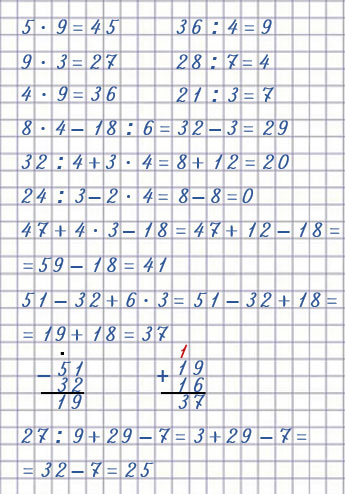 5 · 9 = 45   36 : 4 = 9
9 · 3 = 27   28 : 7 = 4
4 · 9 = 36   21 : 3 = 7
8 · 4 – 18 : 6 = 32 – 3 = 29
32 : 4 + 3 · 4 = 8 + 12 = 20
24 : 3 – 2 · 4 = 8 – 8 = 0
47 + 4 · 3 – 18 = 47 + 12 – 18 =
= 59 – 18 = 41
51 – 32 + 6 · 3 = 51 – 32 + 18 =
= 19 + 18 = 37
·   1
– 51   + 19
32   16
19   37
27 : 9 + 29 – 7 = 3 + 29 – 7 =
= 32 – 7 = 25